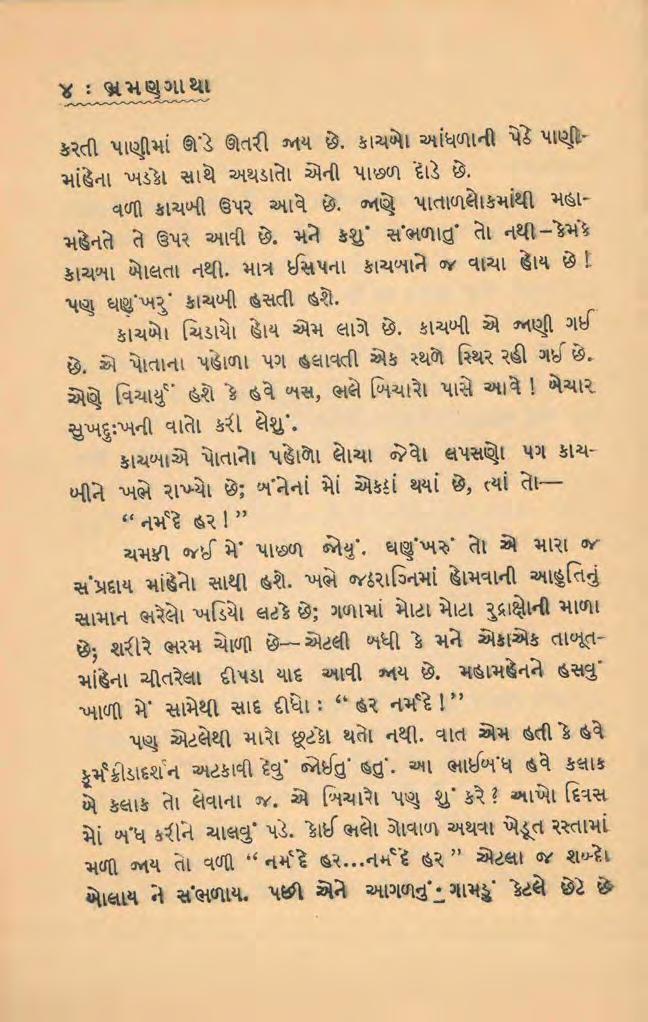 ૪ : ભ્રમણગાથા
કરતી પાણીમાં ઊંડે ઊતરી જાય છે. કાચબો આંધળાની પેઠે પાણી-
માંહેના ખડકો સાથે અથડાતો એની પાછળ દોડે છે.
વળી કાચબી ઉપર આવે છે. જાણે પાતાળલોકમાંથી મહા-
મહેનતે તે ઉપર આવી છે. મને કશું સંભળાતું તો નથી–કેમકે
કાચબા બોલતા નથી. માત્ર ઈસપના કાચબાને જ વાચા હોય છે !
પણ ઘણુંખરું કાચબી હસતી હશે.
કાચબો ચિડાયો હોય એમ લાગે છે. કાચબી એ જાણી ગઈ
છે. એ પોતાના પહોળા પગ હલાવતી એક સ્થળે સ્થિર રહી ગઈ છે.
એણે વિચાર્યું હશે કે હવે બસ, ભલે બિચારો પાસે આવે ! બેચાર
સુખદુઃખની વાતો કરી લેશું.
કાચબાએ પોતાનો પહોળો લોચા જેવો લપસણો પગ કાચ-
બીને ખભે રાખ્યો છે; બંનેનાં મોં એકઠાં થયાં છે, ત્યાં તો—
“ નર્મદે હર ! ”
ચમકી જઈ મેં પાછળ જોયું. ઘણુંખરું તો એ મારા જ
સંપ્રદાય માંહેનો સાથી હશે. ખભે જઠરાગ્નિમાં હોમવાની આહુતિનું
સામાન ભરેલો ખડિયો લટકે છે; ગળામાં મોટા મોટા રુદ્રાક્ષોની માળા
છે; શરીરે ભસ્મ ચોળી છે—એટલી બધી કે મને એકાએક તાબૂત-
માંહેના ચીતરેલા દીપડા યાદ આવી જાય છે. મહામહેનને હસવું
ખાળી મેં સામેથી સાદ દીધો : “ હર નર્મદે ! ”
પણ એટલેથી મારો છૂટકો થતો નથી. વાત એમ હતી કે હવે
કૂર્મક્રીડાદર્શન અટકાવી દેવું જોઈતું હતું. આ ભાઈબંધ હવે કલાક
બે કલાક તો લેવાના જ. એ બિચારો પણ શું કરે ? આખો દિવસ
મોં બંધ કરીને ચાલવું પડે. કોઈ ભલો ગોવાળ અથવા ખેડૂત રસ્તામાં
મળી જાય તો વળી “ નર્મદે હર...નર્મદે હર ” એટલા જ શબ્દો
બોલાય ને સંભળાય. પછી એને આગળનું ગામડું કેટલે છેટે છે